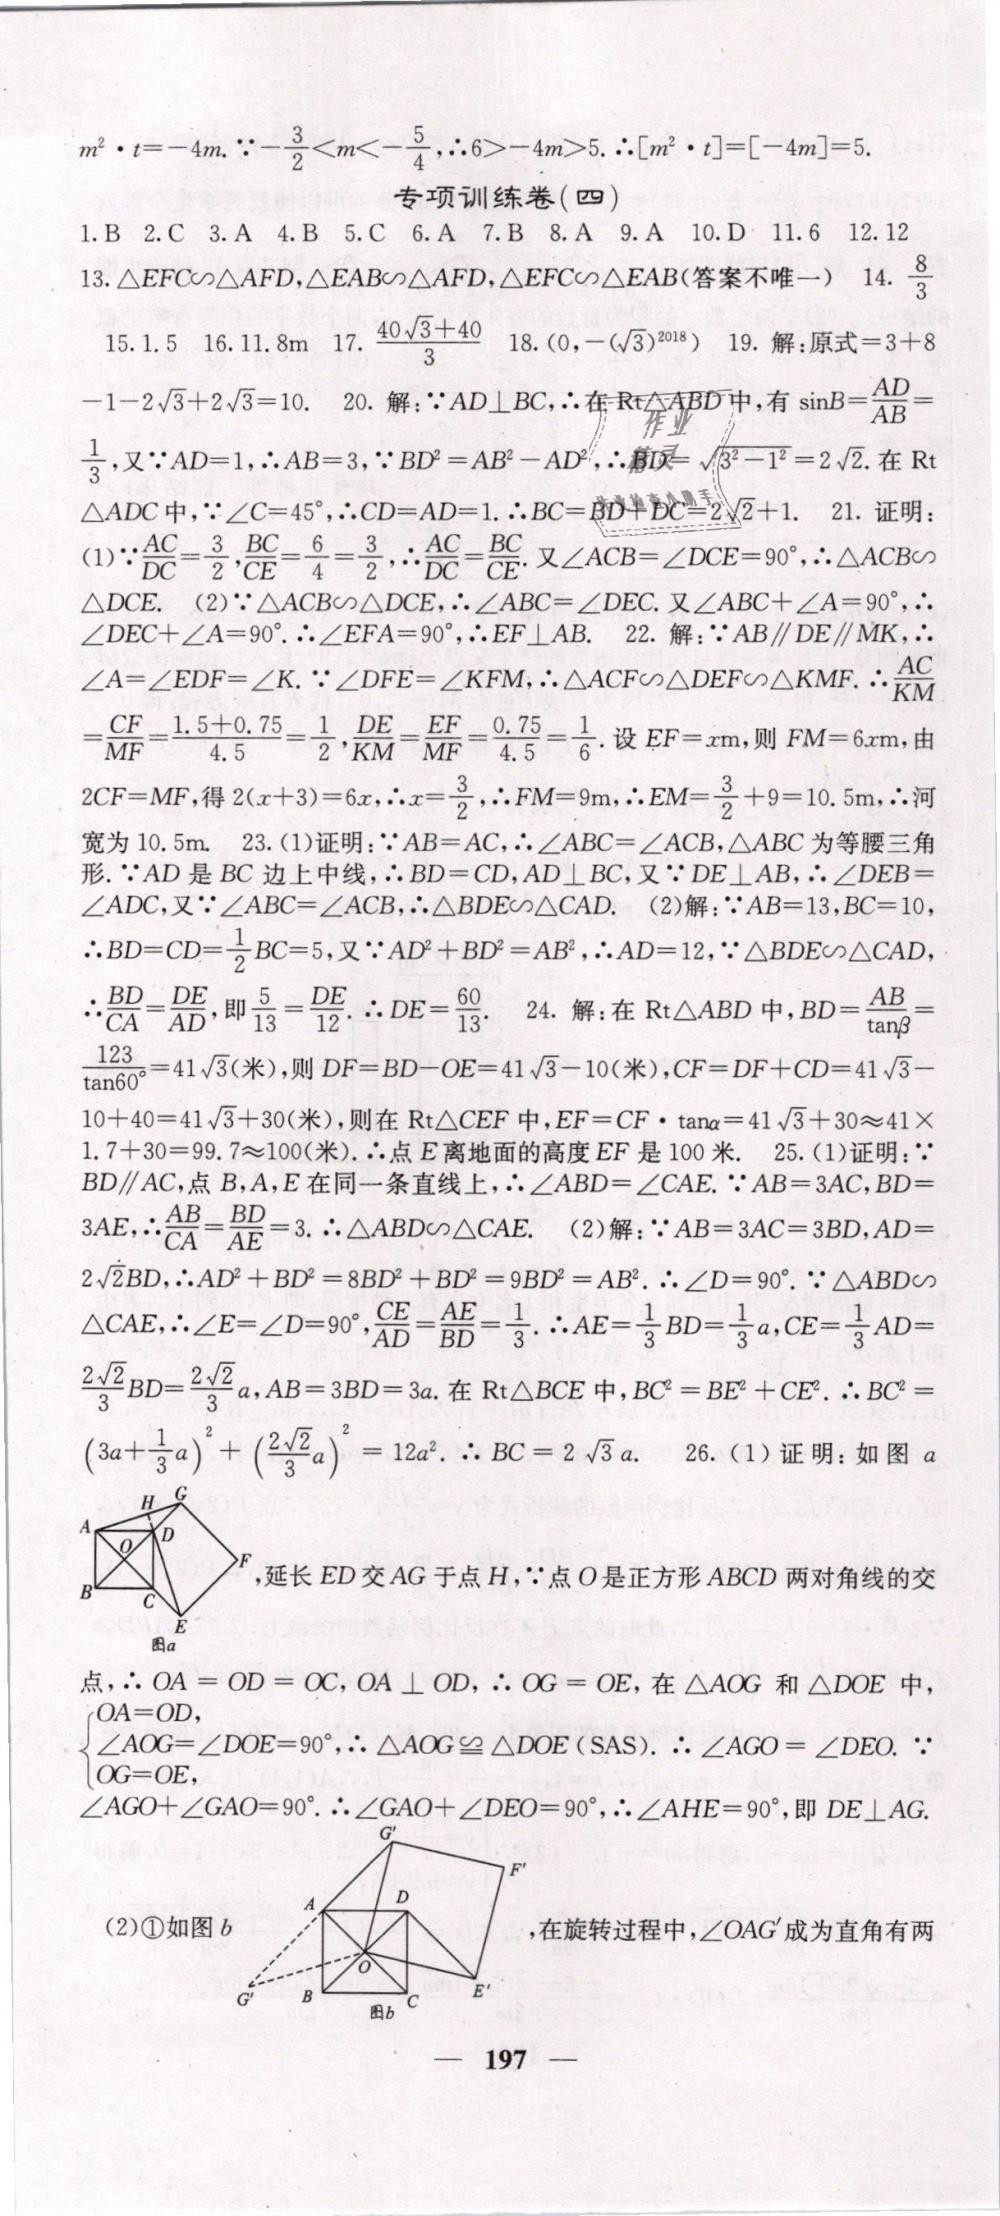 m²·t=-4m.∵-3/2<m<-5/4,∴6>-4m>5.∴[m²·t]=[-4m]=5.
专项训练卷(四)
1.B 2.C 3.A 4.B 5.C 6.A 7.B 8.A 9.A 10.D 11.6 12.12
13.△EFC∽△AFD,△EAB∽△AFD,△EFC∽△EAB(答案不唯一) 14. 8/3
15.1.5 16.11.8m 17. (40√3+40)/3 18.(0,-(√3)²⁰¹⁸) 19. 解:原式=3+8
-1-2√3+2√3=10. 20. 解:∵AD⊥BC,∴在Rt△ABD中,有 sinB=AD/AB=
1/3,又∵AD=1,∴AB=3,∵BD²=AB²-AD²,∴BD=√(3²-1²)=2√2.在 Rt
△ADC中,∵∠C=45°,∴CD=AD=1.∴BC=BD+DC=2√2+1. 21. 证明:
(1)∵AC/DC=3/2,BC/CE=6/4=3/2,∴AC/DC=BC/CE.又∠ACB=∠DCE=90°,∴△ACB∽
△DCE. (2)∵△ACB∽△DCE,∴∠ABC=∠DEC.又∠ABC+∠A=90°,∴
∠DEC+∠A=90°.∴∠EFA=90°,∴EF⊥AB. 22. 解:∵AB∥DE∥MK,∴
∠A=∠EDF=∠K.∵∠DFE=∠KFM,∴△ACF∽△DEF∽△KMF.∴AC/KM
=CF/MF=(1.5+0.75)/4.5=1/2,DE/KM=EF/MF=0.75/4.5=1/6.设 EF=xm,则 FM=6xm,由
2CF=MF,得 2(x+3)=6x,∴x=3/2,∴FM=9m,∴EM=3/2+9=10.5m,∴河
宽为 10.5m. 23.(1)证明:∵AB=AC,∴∠ABC=∠ACB,△ABC 为等腰三角
形.∵AD 是 BC 边上中线,∴BD=CD,AD⊥BC,又∵DE⊥AB,∴∠DEB=
∠ADC,又∵∠ABC=∠ACB,∴△BDE∽△CAD. (2)解:∵AB=13,BC=10,
∴BD=CD=1/2BC=5,又∵AD²+BD²=AB²,∴AD=12,∵△BDE∽△CAD,
∴BD/CA=DE/AD,即5/13=DE/12.∴DE=60/13. 24. 解:在 Rt△ABD 中,BD=AB/tanβ=
123/tan60°=41√3(米),则 DF=BD-OE=41√3-10(米),CF=DF+CD=41√3-
10+40=41√3+30(米),则在 Rt△CEF 中,EF=CF·tanα=41√3+30≈41×
1.7+30=99.7≈100(米).∴点 E 离地面的高度 EF 是 100 米. 25.(1)证明:∵
BD∥AC,点 B,A,E 在同一条直线上,∴∠ABD=∠CAE.∵AB=3AC,BD=
3AE,∴AB/CA=BD/AE=3.∴△ABD∽△CAE. (2)解:∵AB=3AC=3BD,AD=
2√2BD,∴AD²+BD²=8BD²+BD²=9BD²=AB².∴∠D=90°.∵△ABD∽
△CAE,∴∠E=∠D=90°,CE/AD=AE/BD=1/3.∴AE=1/3BD=1/3a,CE=1/3AD=
2√2/3BD=2√2/3a,AB=3BD=3a.在 Rt△BCE 中,BC²=BE²+CE².∴BC²=
(3a+1/3a)²+(2√2/3a)²=12a².∴BC=2√3a. 26.(1)证明:如图 a
H G
A O D
B C F
E
图a
,延长 ED 交 AG 于点 H,∵点 O 是正方形 ABCD 两对角线的交
点,∴OA=OD=OC,OA⊥OD,∴OG=OE,在△AOG 和△DOE 中,
{OA=OD,
∠AOG=∠DOE=90°,∴△AOG≌△DOE(SAS).∴∠AGO=∠DEO.∵
OG=OE,
∠AGO+∠GAO=90°.∴∠GAO+∠DEO=90°,∴∠AHE=90°,即 DE⊥AG.
G′
F′
A D
(2)①如图 b
,在旋转过程中,∠OAG′成为直角有两
O
G′ B C E′
图b
— 197 —
作业
精灵